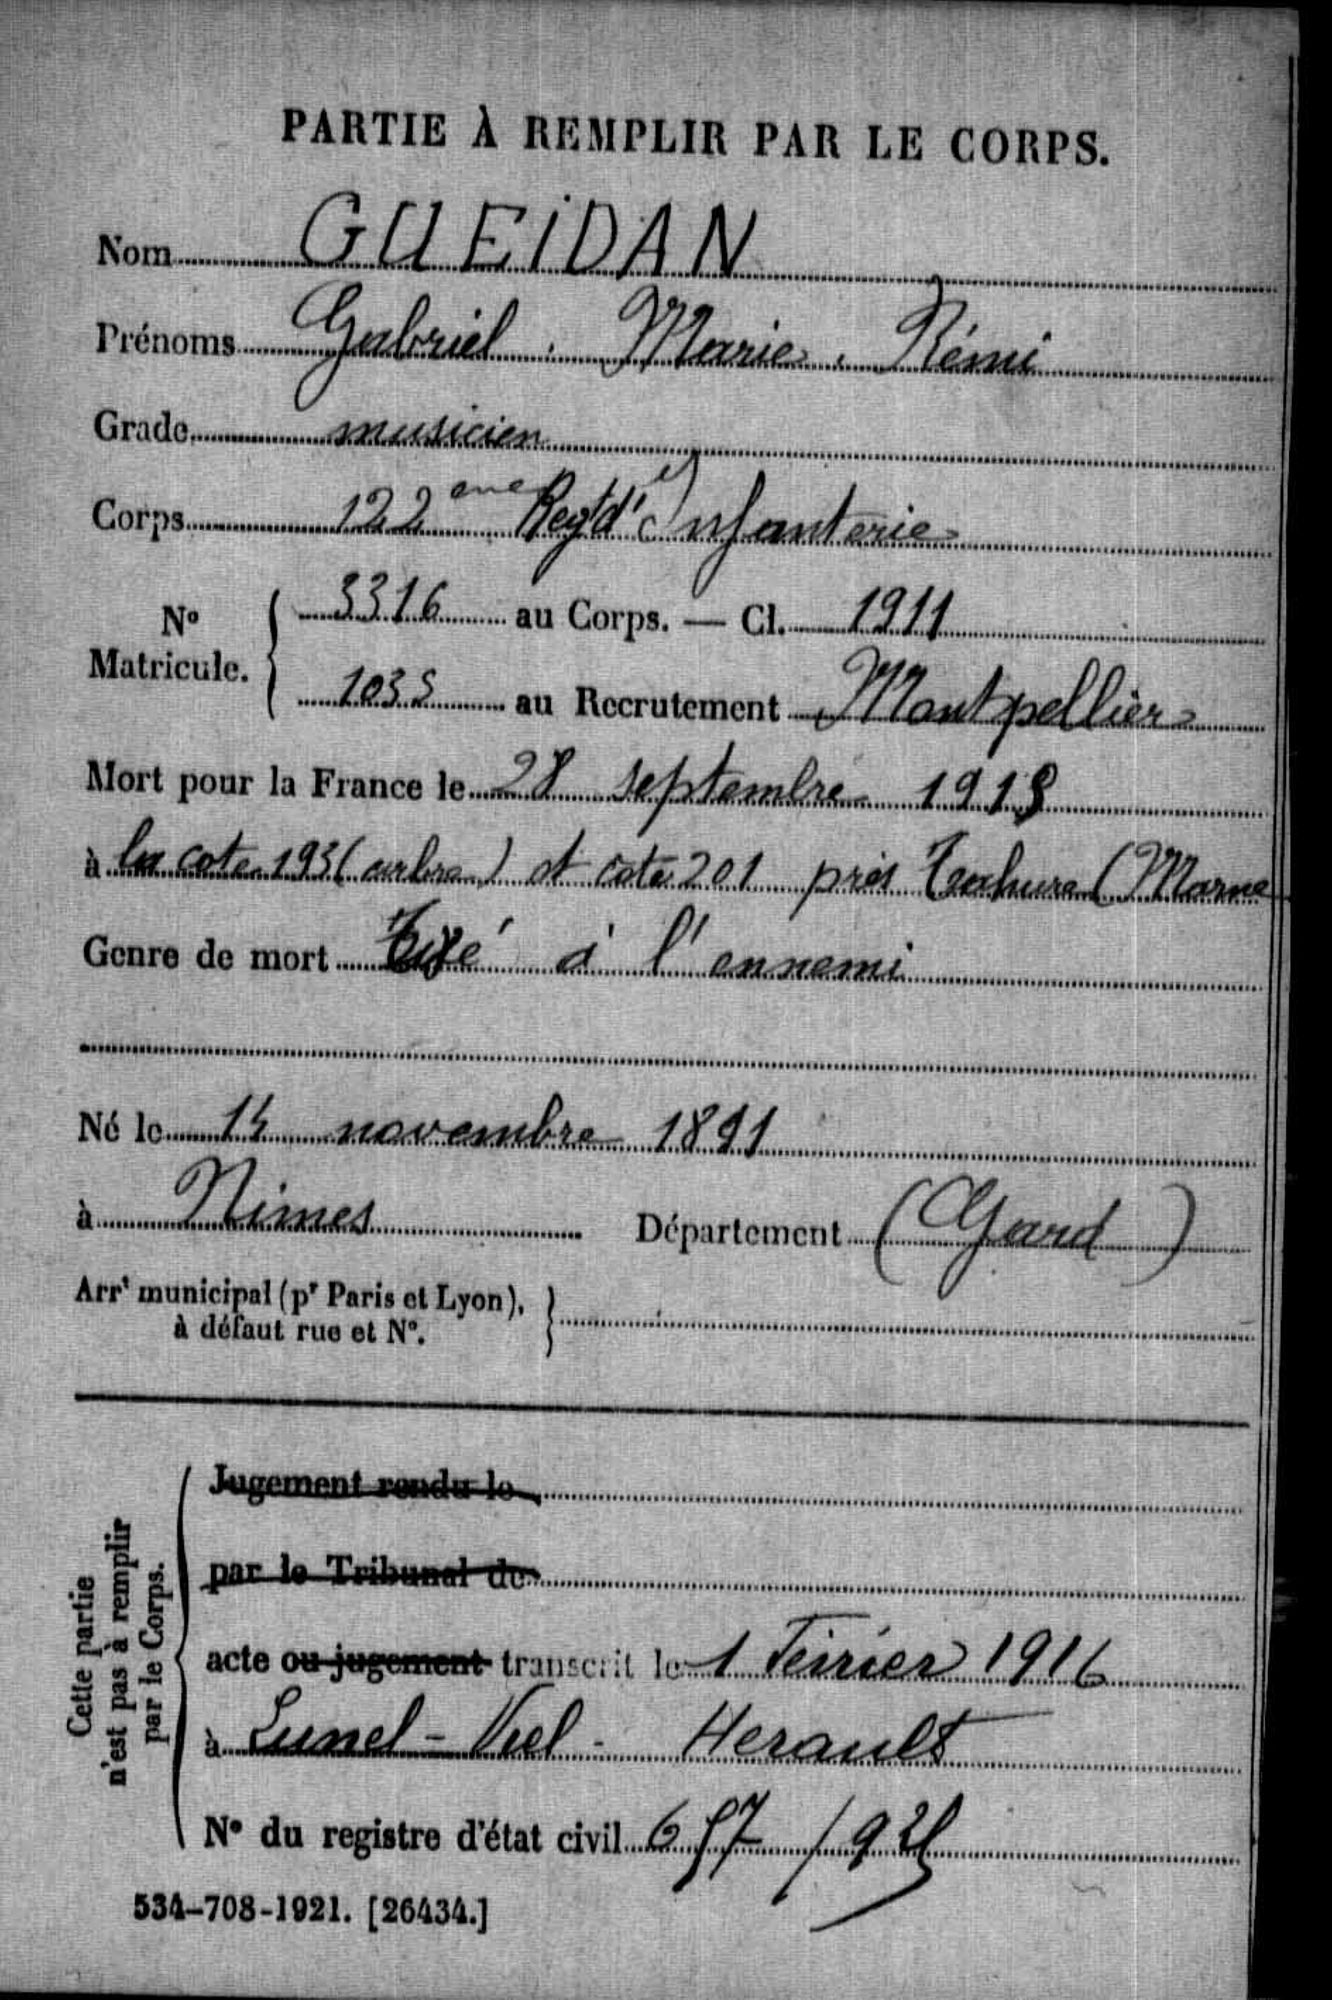 PARTIE À REMPLIR PAR LE CORPS.
Nom GUEIDAN
Prénoms Gabriel . Marie . Rémi
Grade musicien
Corps 122eme Regt d'Infanterie
No Matricule. 3316 au Corps. — Cl. 1911
1035 au Recrutement Montpellier
Mort pour la France le 28 septembre 1915
à la cote 193 (arbre) et cote 201 près Tahure (Marne
Genre de mort Tué à l'ennemi
Né le 14 novembre 1891
à Nimes Département (Gard)
Arrt municipal (pr Paris et Lyon),
à défaut rue et No.
Cette partie
n'est pas à remplir
par le Corps.
Jugement rendu le
par le Tribunal de
acte ou jugement transcrit le 1 Février 1916
à Lunel-Viel - Herault
No du registre d'état civil
534-708-1921. [26434.]